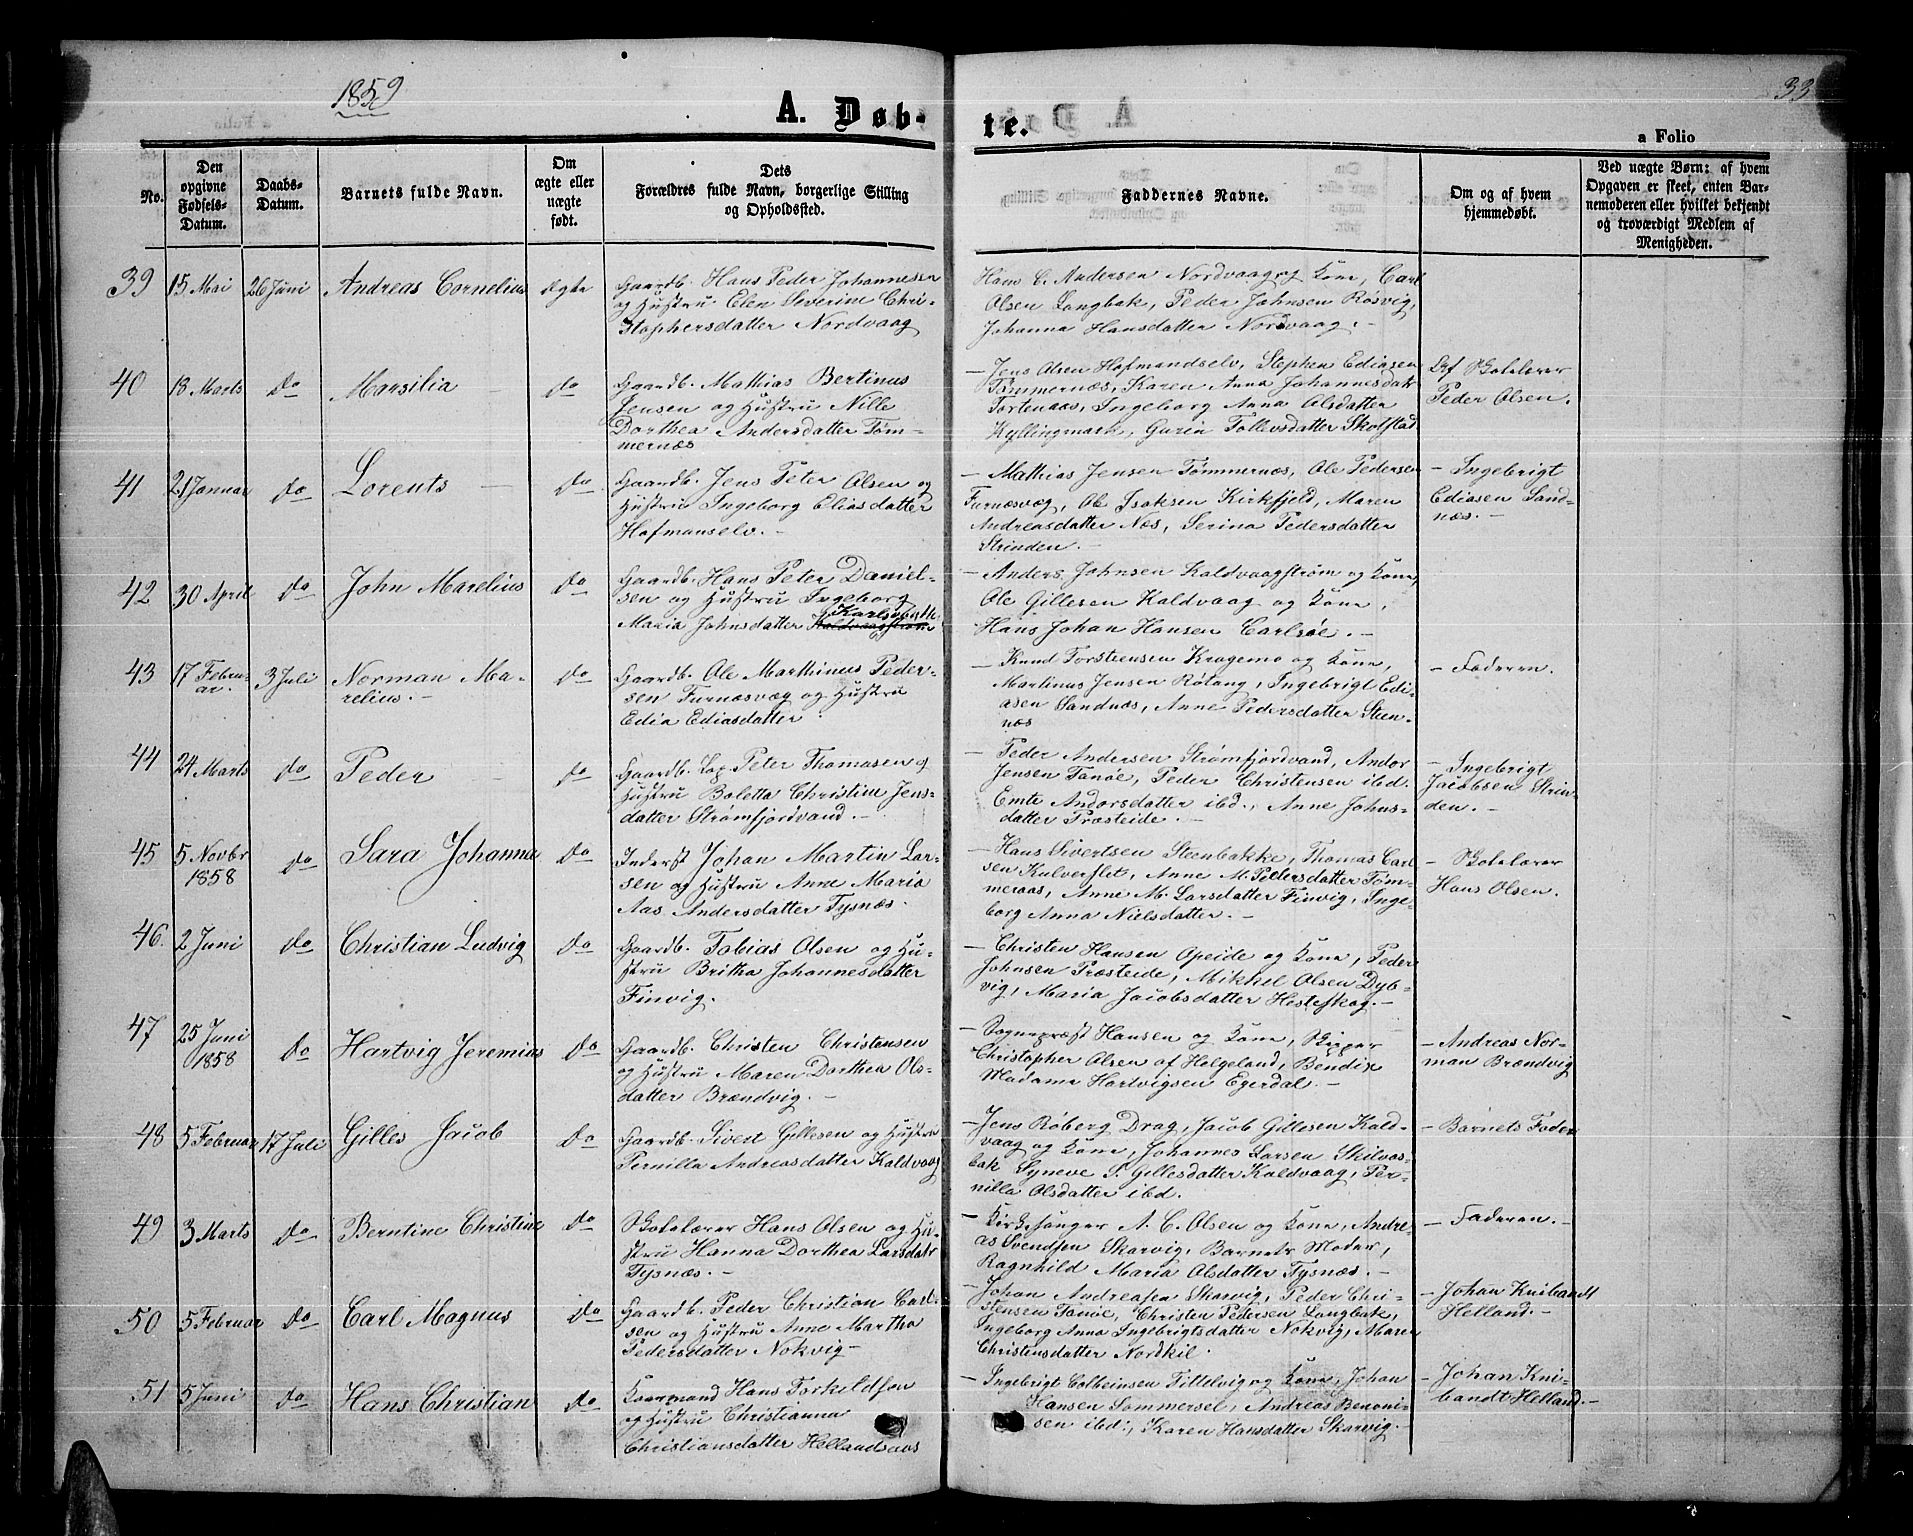 1859
33
A. Døb-
te.
a Folio
No.
Den opgivne Fødsels-Datum.
Daabs-Datum.
Barnets fulde Navn.
Om ægte eller uægte født.
Dets Forældres fulde Navn, borgerlige Stilling og Opholdssted.
Faddernes Navne.
Om og af hvem hjemmedøbt.
Ved uægte Børn: af hvem Opgaven er skeet, enten Barnemoderen eller hvilket bekjendt og troværdigt Medlem af Menigheden.
39 15 Mai 26 Juni Andreas Cornelius ægte
Gaardb. Hans Peder Johannessen
og Hustru Elen Severine Chri-
stophersdatter Nordvaag
Hans C. Andersen Nordvaag og Kone, Carl
Olsen Langbak, Peder Johnsen Røsvig,
Johanna Hansdatter Nordvaag. -
40 18 Marts do Marsilia - do
Gaardb. Mathias Bertinus
Jensen og Hustru Nille
Dorthea Andersdatter Tøm-
mernæs
- Jens Olsen Hofmandselv, Stephen Ediasen
Tømmernæs, Karen Anna Johannesdatr
Tortenaas, Ingeborg Anna Olsdatter
Kyllingmark, Guria Tollevsdatter Skotstad
Af Skolelærer
Peder Olsen.
41 21 Januar do Lorents - do
Gaardb. Jens Peter Olsen og
Hustru Ingeborg Eliasdatter
Hofmanselv. -
- Mathias Jensen Tømmernæs, Ole Pedersen
Furnæsvæg, Ole Isaksen Kirkfjeld, Maren
Andreasdatter Næs, Serina Pedersdatter
Strinden. -
- Ingebrigt
Ediasen Sand-
næs. -
42 30 April do John Marelius do
Gaardb. Hans Peter Daniel-
sen og Hustru Ingeborg
Maria Johnsdatter
- Anders Johnsen Kaldvaagstrøm og Kone,
Ole Gillesen Kaldvaag og Kone,
Hans Johan Hansen Carlsøe. -
43 17 Febru-
ar. 3 Juli Norman Ma-
relius. - do
Gaardb. Ole Marthinus Peder-
sen Furnæsvæg og Hustru
Edia Ediasdatter
- Knud Torstensen Kragemo og Kone,
Martinus Jensen Røtang, Ingebrigt Edi-
asen Sandnæs, Anne Pedersdatter Steen-
næs
- Faderen.
44 24 Marts do Peder - do
Gaardb. Lap Peter Thomasen og
Hustru Boletta Christine Jens-
datter Strømfjordvand. -
- Peder Andersen Strømfjordvand, Andor
Jensen Tanøe, Peder Christensen ibd.
Emte Andorsdatter ibd., Anne Johns-
datter Præsteide. -
- Ingebrigt
Jacobsen Strin-
den. -
45 5 Novbr
1858 do Sara Johanna do
Inderst Johan Martin Lar-
sen og Hustru Anne Maria
Aas Andersdatter Tysnæs.
- Hans Sivertsen Steenbakke, Thomas Carl
sen Kulverflet, Anne M. Pedersdatter Tøm-
meraas, Anne M. Larsdatter Finvig, Inge-
borg Anna Nielsdatter. -
- Skolelærer
Hans Olsen.
46. 2 Juni do Christian Ludvig do
Gaardb. Tobias Olsen og Hu-
stru Britha Johannesdatter
Finvig.
- Christen Hansen Opeide og Kone, Peder
Johnsen Præsteide, Mikkel Olsen Dyb-
vig, Maria Jacobsdatter Hesteskog. -
47 25 Juni
1858 do Hartvig Jeremias do
Gaardb. Christen Christensen
og Hustru Maren Dorthea Ols-
datter Brændvig. -
- Sognepræst Hansen og Kone, Skipper
Christopher Olsen af Helgeland, Bendix
Madame Hartvigsen Egerdal. -
- Andreas Nor-
man Brændvig
48 5 Februar 17 Juli Gilles Jacob do
Gaardb. Sivert Gillesen og Hustru
Pernilla Andreasdatter Kaldvaag
- Jens Røberg Drag, Jacob Gillesen Kald-
vaag og Kone, Johannes Larsen Skilvas-
bak Syneve S. Gillesdatter Kaldvaag, Per-
nilla Olsdatter ibd.
- Barnets Fader
49 3 Marts do Berntine Christine do
Skolelærer Hans Olsen og Hu-
stru Hanna Dorthea Larsdatr
Tysnæs. -
- Kirkesanger A. C. Olsen og Kone, Andre-
as Svendsen Skarvig, Barnets Moder,
Ragnhild Maria Olsdatter Tysnæs. -
- Faderen. -
50 5 Februar do Carl Magnus do
Gaardb. Peder Christian Carl-
sen og Hustru Anne Martha
Pedersdatter Nokvig -
- Johan Andreasen Skarvig, Peder Chri-
stensen Tanøe, Christen Pedersen Langbak,
Ingeborg Anna Ingebrigtsdatter Nokvig, Maren
Christensdatter Nordkil.
- Johan Knibandt
Helland. -
51 5 Juni do Hans Christian do
Kaarmand Hans Torkildsen
og Hustru Christianna
Christiansdatter Hellandsnæs
- Ingebrigt Colbeinsen Tittelvig og Kone, Johan
Hansen Sommersel, Andreas Benoni-
sen ibd., Karen Hansdatter Skarvig. -
- Johan Kni-
bandt Helland. -